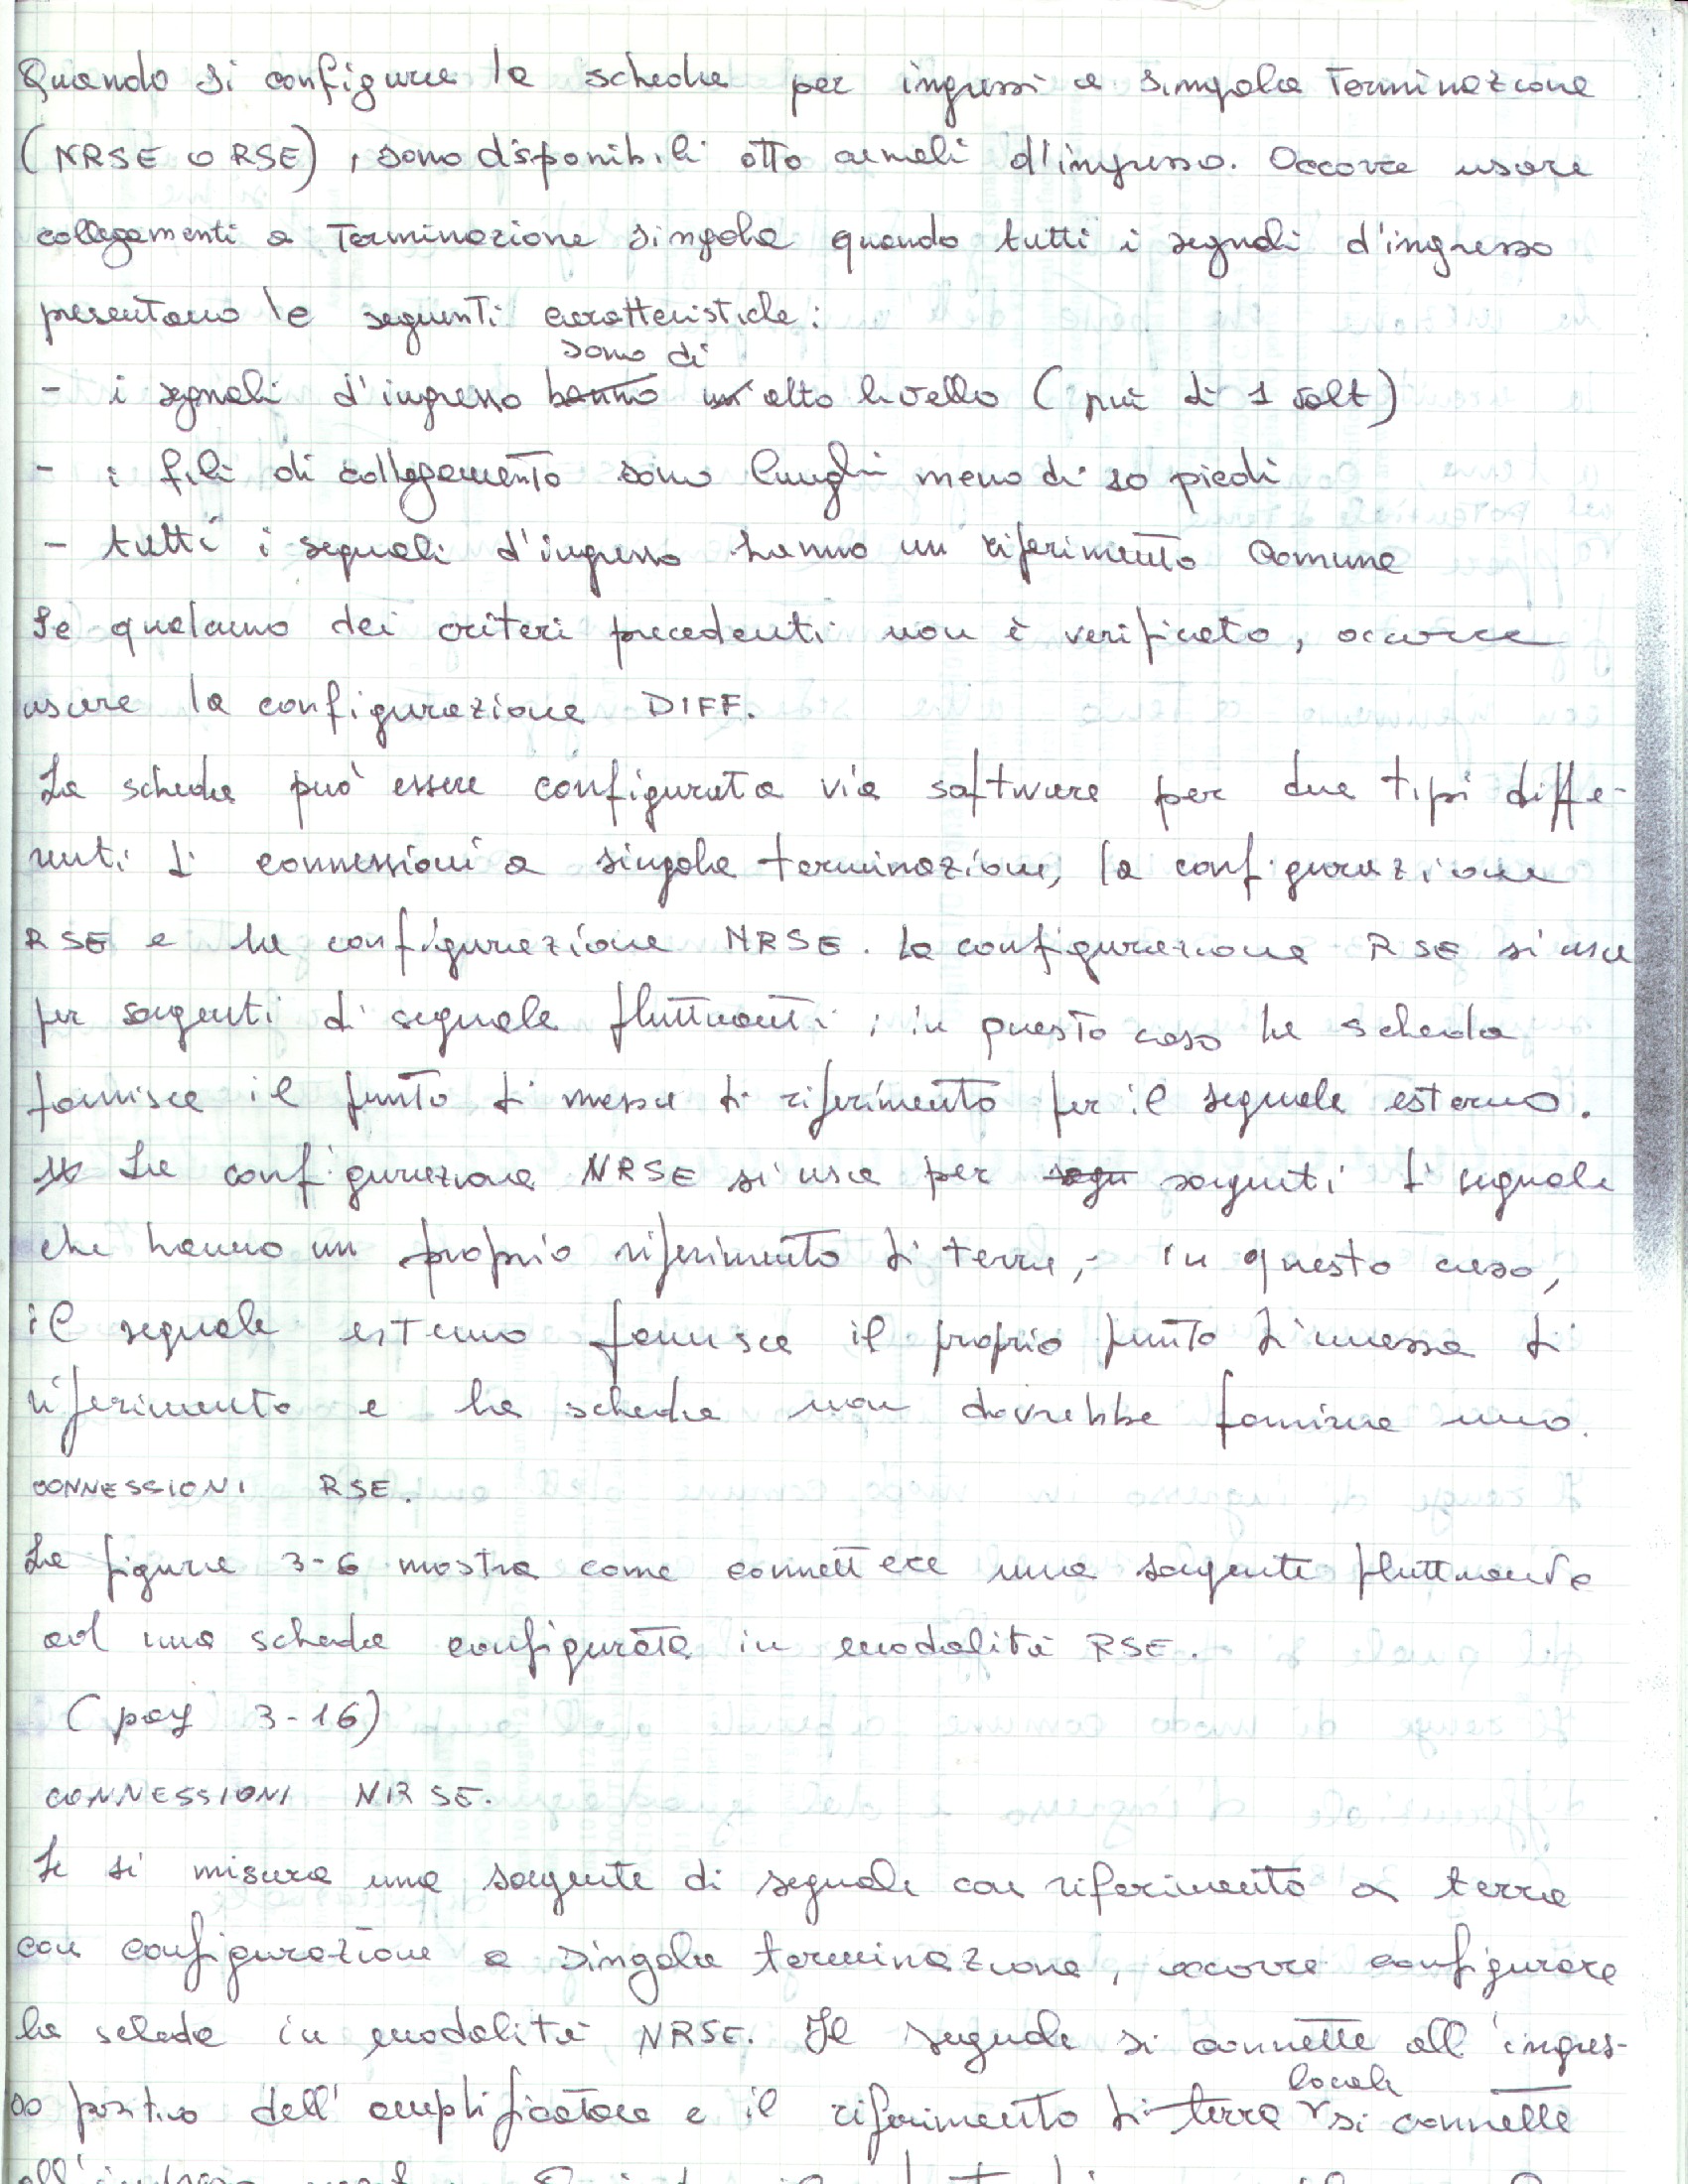 Quando si configura la scheda per ingressi a singola terminazione
(NRSE o RSE), sono disponibili otto canali d'ingresso. Occorre usare
collegamenti a terminazione singola quando tutti i segnali d'ingresso
presentano le seguenti caratteristiche:
sono di
- i segnali d'ingresso hanno un alto livello (più di 1 volt)
- i fili di collegamento sono lunghi meno di 10 piedi
- tutti i segnali d'ingresso hanno un riferimento comune
Se qualcuno dei criteri precedenti non è verificato, occorre
usare la configurazione DIFF.
La scheda può essere configurata via software per due tipi diffe-
renti di connessioni a singola terminazione, la configurazione
RSE e la configurazione NRSE. La configurazione RSE si usa
per sorgenti di segnale fluttuanti; in questo caso la scheda
fornisce il punto di massa di riferimento per il segnale esterno.
La configurazione NRSE si usa per sorgenti di segnale
che hanno un proprio riferimento di terra; in questo caso,
il segnale esterno fornisce il proprio punto di massa di
riferimento e la scheda non dovrebbe fornirne uno.
CONNESSIONI RSE.
La figura 3-6 mostra come connettere una sorgente fluttuante
ad una scheda configurata in modalità RSE.
(pag 3-16)
CONNESSIONI NRSE.
Se si misura una sorgente di segnale con riferimento a terra
con configurazione a singola terminazione, occorre configurare
la scheda in modalità NRSE. Il segnale si connette all'ingres-
so positivo dell'amplificatore e il riferimento di terra locale si connette